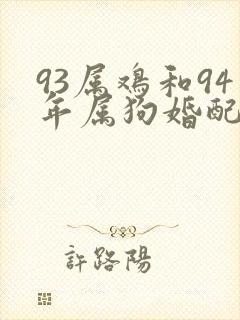 93属鸡和94
年属狗婚配
許路陽